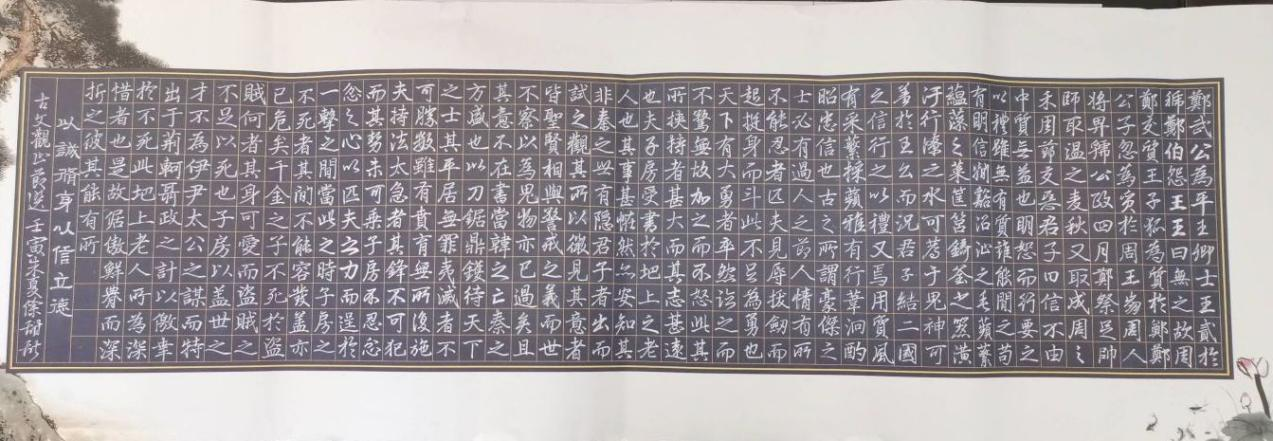 鄭武公為平王卿士王貳於
虢鄭伯怨王王曰無之故周
鄭交質王子狐為質於鄭鄭
公子忽為質於周王崩周人
將畀虢公政四月鄭祭足帥
師取温之麦秋又取成周之
禾周鄭交惡君子曰信不由
中質無益也明恕而行要之
以禮雖無有質誰能間之苟
有明信澗谿沼沚之毛蘋蘩
蕰藻之菜筐筥錡釜之器潢
汙行潦之水可薦于鬼神可
羞於王公而況君子結二國
之信行之以禮又焉用質風
有采蘩採蘋雅有行葦泂酌
昭忠信也古之所謂豪傑之
士必有過人之節人情有所
不能忍者匹夫見辱拔劍而
起挺身而斗此不足為勇也
天下有大勇者卒然臨之而
不驚無故加之而不怒此其
所挾持者甚大而其志甚遠
也夫子房受書於圯上之老
人也其事甚怪然亦安知其
非秦之世有隱君子者出而
試之觀其所以微見其意者
皆聖賢相與警戒之義而世
不察以為鬼物亦已過矣且
其意不在書當韓之亡秦之
方盛也以刀鋸鼎鑊待天下
之士其平居無罪夷滅者不
可勝數雖有賁育無所復施
夫持法太急者其鋒不可犯
而其勢未可乘子房不忍忿
忿之心以匹夫之力而逞於
一擊之間當此之時子房之
不死者其間不能容髮蓋亦
已危矣千金之子不死於盜
賊何者其身可愛而盜賊之
不足以死也子房以蓋世之
才不為伊尹太公之謀而特
出于荊軻聶政之計以僥幸
於不死此圯上老人所為深
惜者也是故倨傲鮮腆而深
折之彼其能有所
以誠脩身以信立德
古文觀止節選壬寅朱夏徐甜